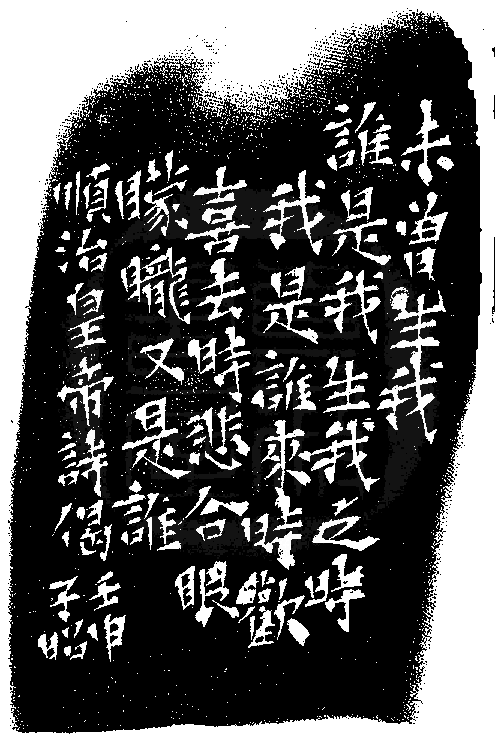 未曾生我
誰是我生我之時
我是誰來時歡
喜去時悲合眼
矇矓又是誰
順治皇帝詩偈
壬申
子